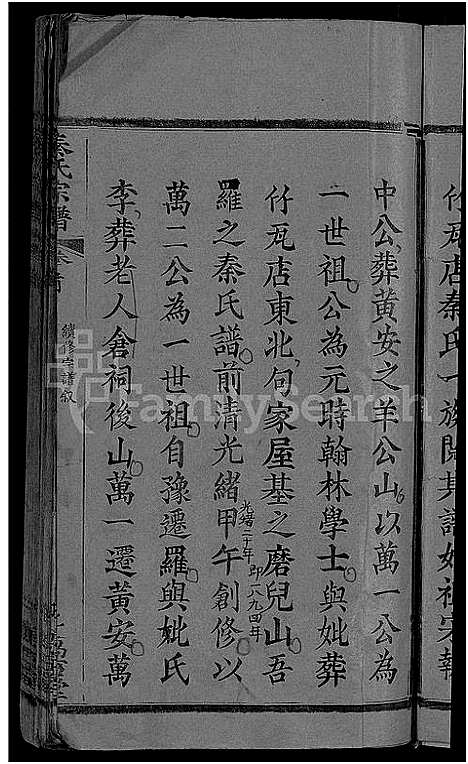 竹瓦店秦氏一族閱其譜始祖宋
中公葬黃安之羊公山以萬一公為
一世祖公為元時翰林學士與妣葬
竹瓦店東北句家屋基之磨兒山吾
羅之秦氏譜前清光緒甲午創修以
光緒二十年 即一八九四年
萬二公為一世祖自豫遷羅與妣氏
李葬老人倉祠後山萬一遷黃安萬
秦氏宗譜
卷首
續修宗譜叙
FamilySearch